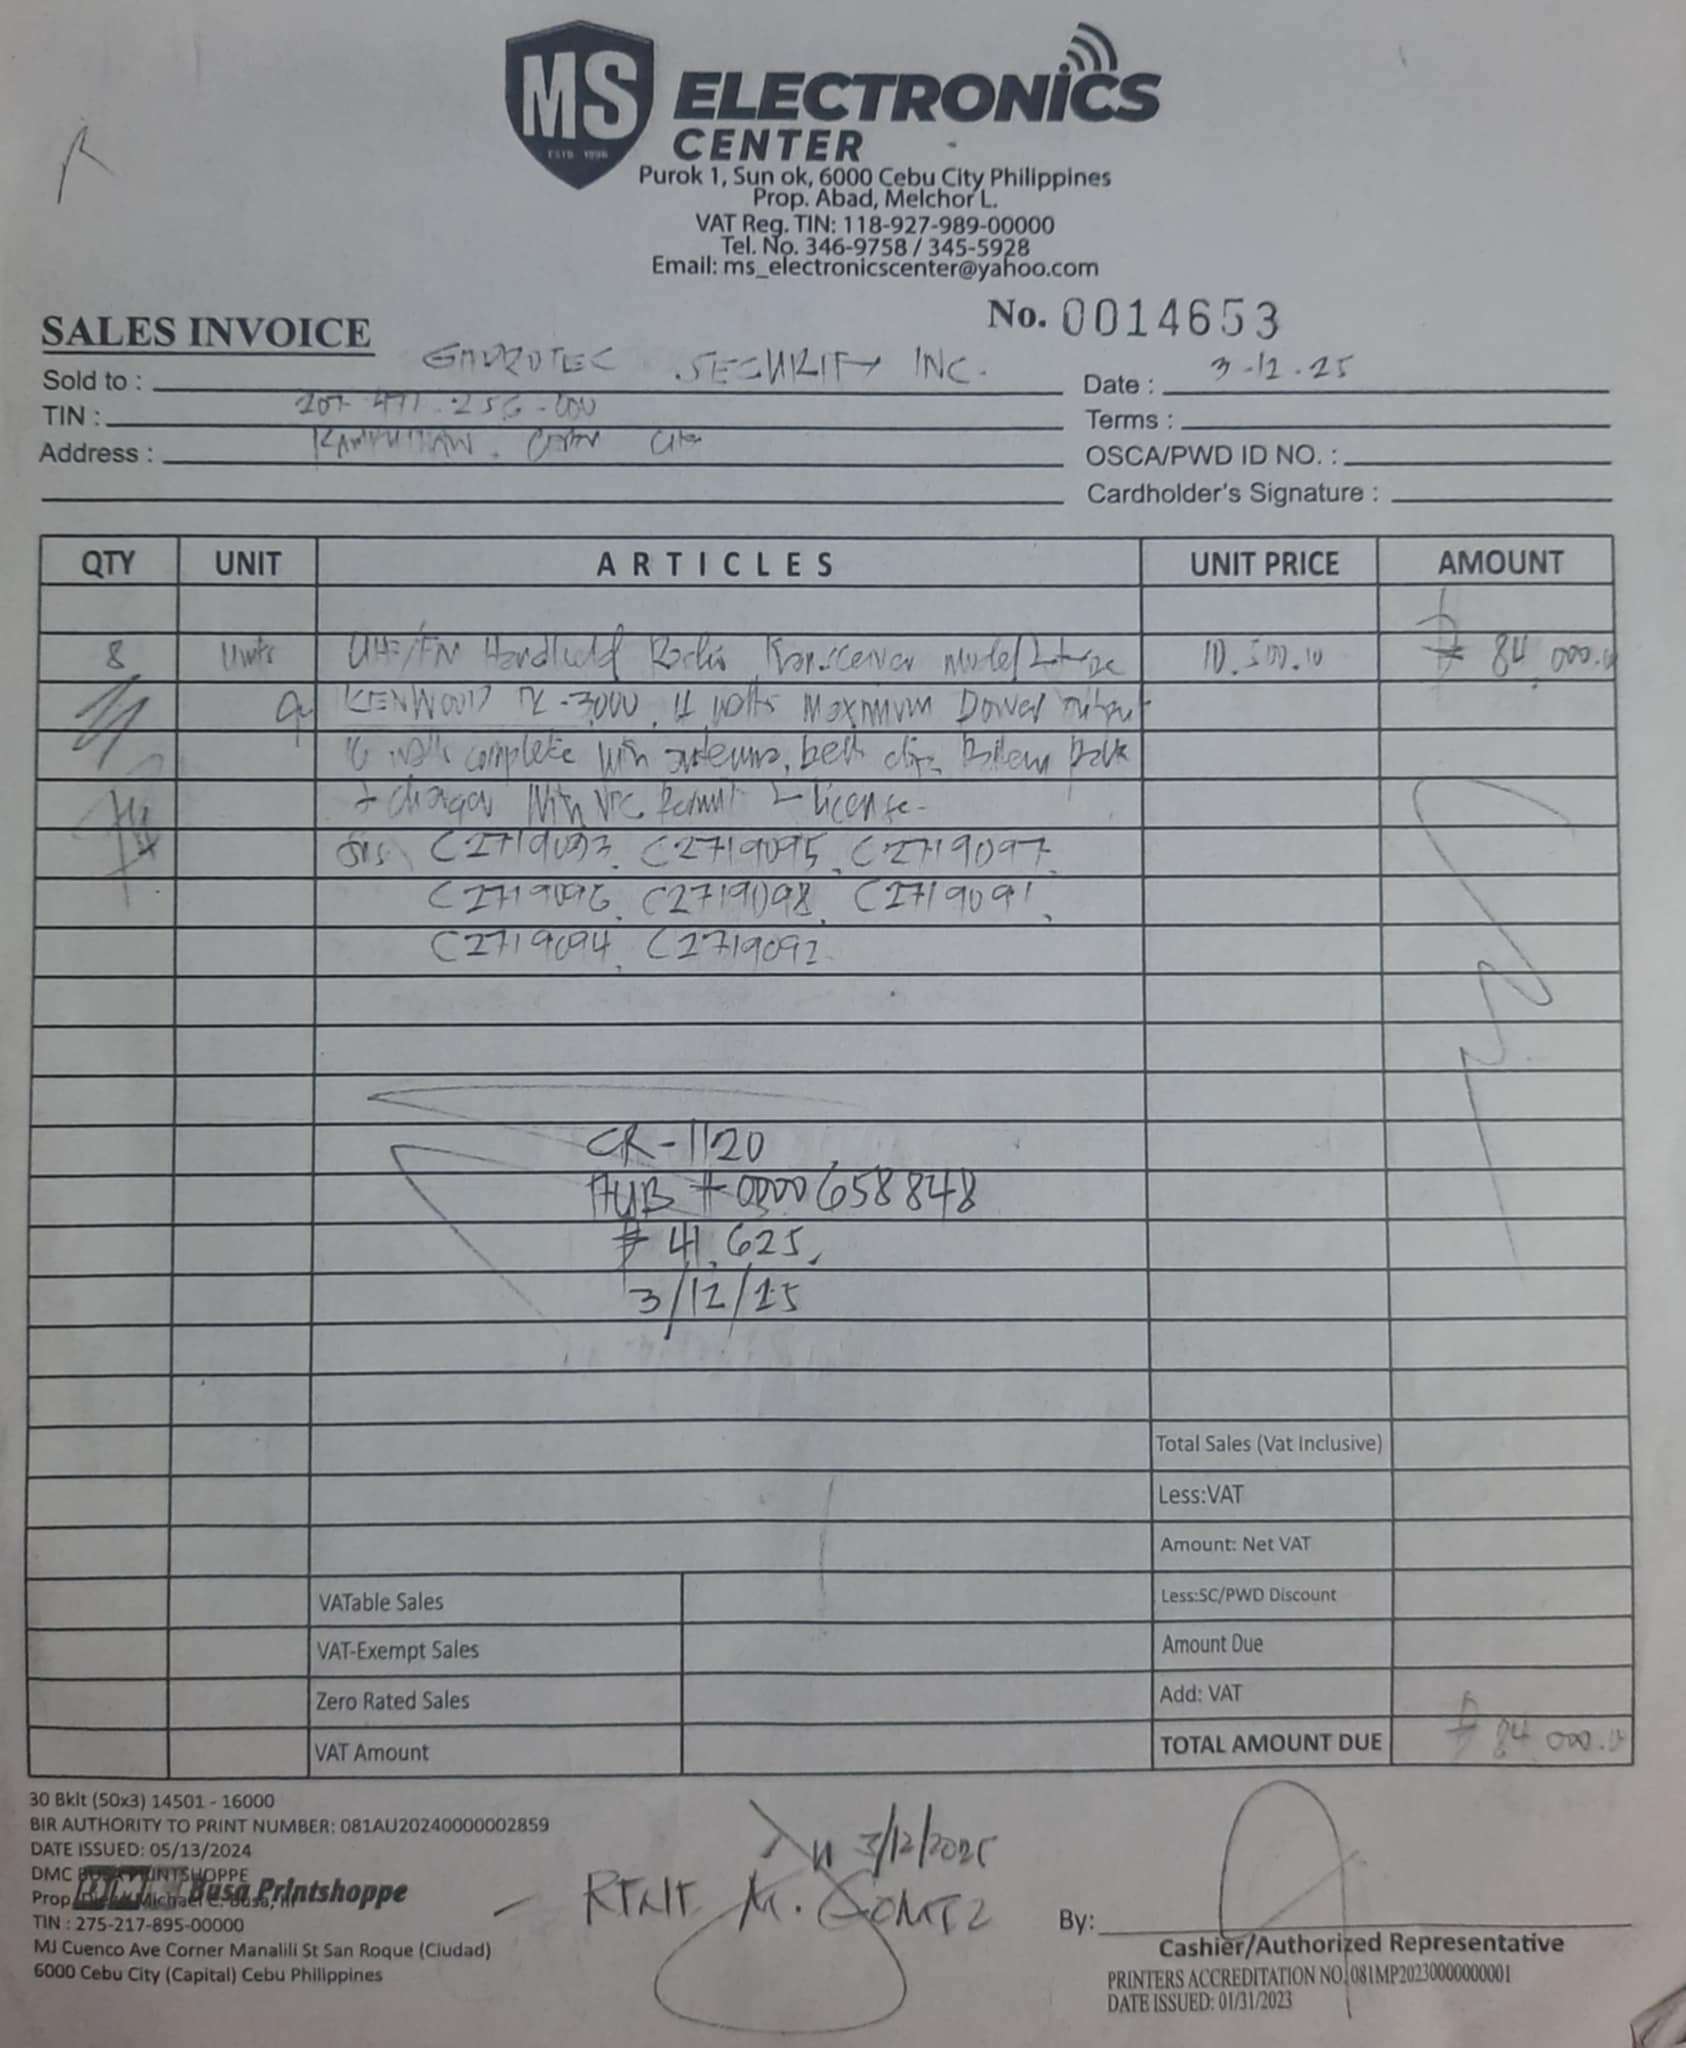 MS
ESTD 1996
ELECTRONICS
CENTER
Purok 1, Sun ok, 6000 Cebu City Philippines
Prop. Abad, Melchor L.
VAT Reg. TIN: 118-927-989-00000
Tel. No. 346-9758 / 345-5928
Email: ms_electronicscenter@yahoo.com
SALES INVOICE
No. 0014653
Sold to : SECURITY INC.
Date : 3-12-25
TIN :
Terms :
Address :
OSCA/PWD ID NO. :
Cardholder's Signature :
QTY UNIT ARTICLES UNIT PRICE AMOUNT
8 Units UHF/FM Handheld Radio Transceiver Model 10,500.00 ₱ 84,000.00
KENWOOD TK-3000, Watts Maximum Power output
complete with antenna, belt clip, Pack
+ charger With NTC Permit License
C2719093, C2719095, C2719097,
C2719096, C2719098, C2719091,
C2719094, C2719092
CR-1120
AUB # 0000658848
₱ 41,625,
3/12/25
Total Sales (Vat Inclusive)
Less:VAT
Amount: Net VAT
VATable Sales Less:SC/PWD Discount
VAT-Exempt Sales Amount Due
Zero Rated Sales Add: VAT
VAT Amount TOTAL AMOUNT DUE ₱ 84,000.00
30 Bklt (50x3) 14501 - 16000
BIR AUTHORITY TO PRINT NUMBER: 081AU20240000002859
DATE ISSUED: 05/13/2024
DMC BUSA PRINTSHOPPE
Busa Printshoppe
Prop. Michael C. Busa,
TIN : 275-217-895-00000
MJ Cuenco Ave Corner Manalili St San Roque (Ciudad)
6000 Cebu City (Capital) Cebu Philippines
3/12/2025
M.
By:
Cashier/Authorized Representative
PRINTERS ACCREDITATION NO. 081MP20230000000001
DATE ISSUED: 01/31/2023